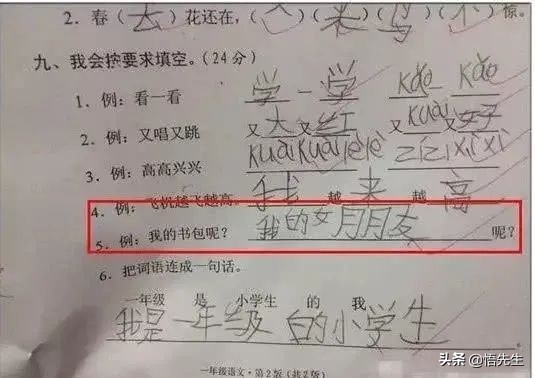 2. 春(去)花还在,( )(来)(鸟)(不)惊。
九、我会按要求填空。(24分)
1. 例：看一看 学-学 kǎo-kǎo
2. 例：又唱又跳 又大又红 又kuài又女子
3. 例：高高兴兴 kuàikuàilèlè zǐzǐxìxì
4. 例：飞机越飞越高。 我越来越高
5. 例：我的书包呢？ 我的女月月友呢？
6. 把词语连成一句话。
一年级 是 小学生 的 我
我是一年级白的小学生。
一年级语文·第2版(共2版)
头条 @悟先生